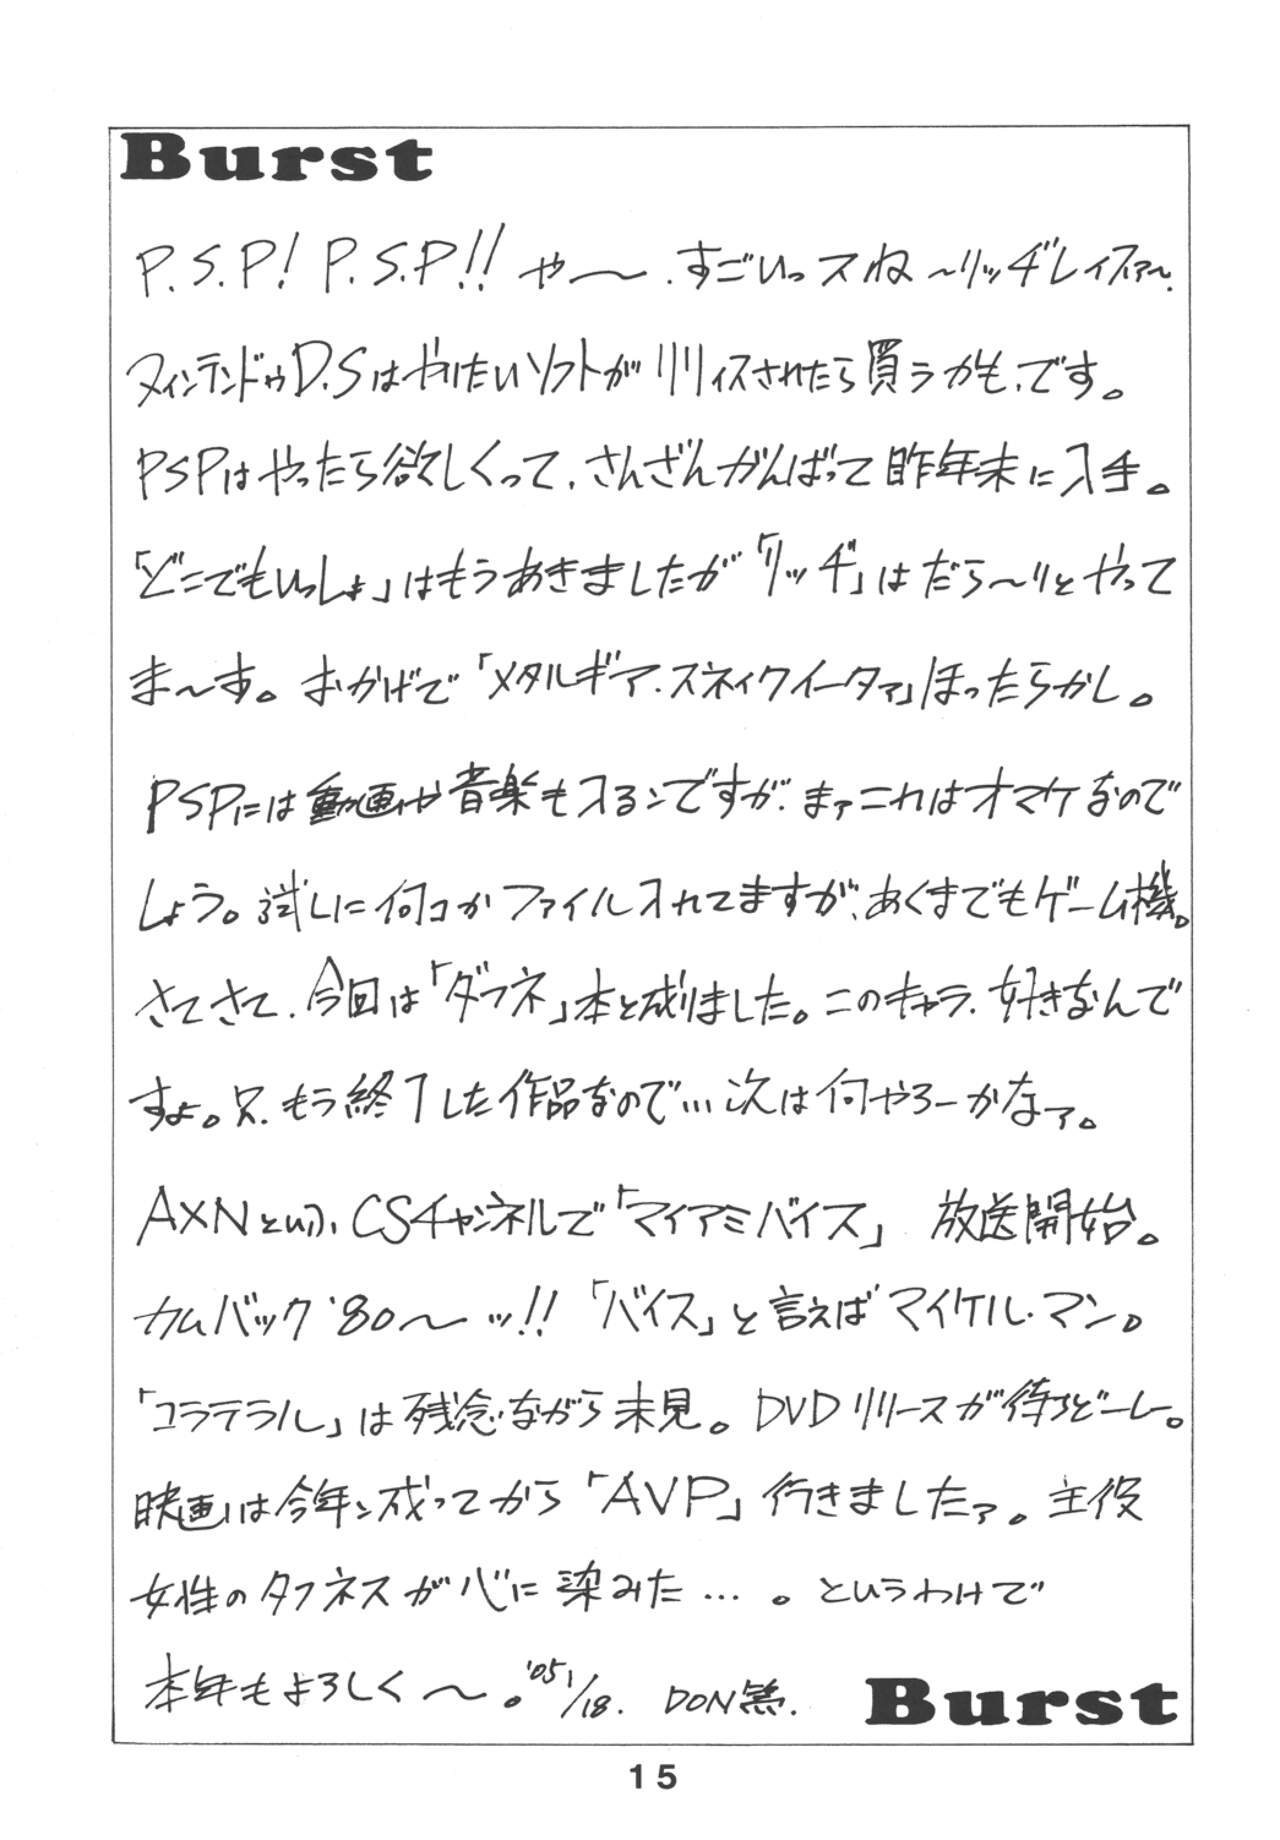 Burst
P.S.P! P.S.P!! や〜.すごいっスね〜リッヂレイスァ〜.
ヌィンテンドゥD.Sはやりたいソフトがリリィスされたら買うかも、です。
PSPはやったら欲しくって、さんざんがんばって昨年末に入手。
「どこでもいっしょ」はもうあきましたが「リッヂ」はだら〜りとやって
ま〜す。おかげで「メタルギア.スネィクイータァ」ほったらかし。
PSPには動画や音楽も入るンですが、まァこれはオマケなので
しょう。試しに何コかファイル入れてますが、あくまでもゲーム機。
さてさて、今回は「ダフネ」本と成りました。このキャラ、好きなんで
すよ。只、もう終了した作品なので…次は何やろーかなァ。
AXNといふCSチャンネルで「マイアミバイス」 放送開始。
カムバック'80〜ッ!! 「バイス」と言えばマイケル・マン。
「コラテラル」は残念ながら未見。DVDリリースが待ちどーしー。
映画は今年ン成ってから「AVP」行きましたァ。主役
女性のタフネスが心に染みた…。というわけで
本年もよろしく〜。'05 1/18. DON熊.
Burst
15